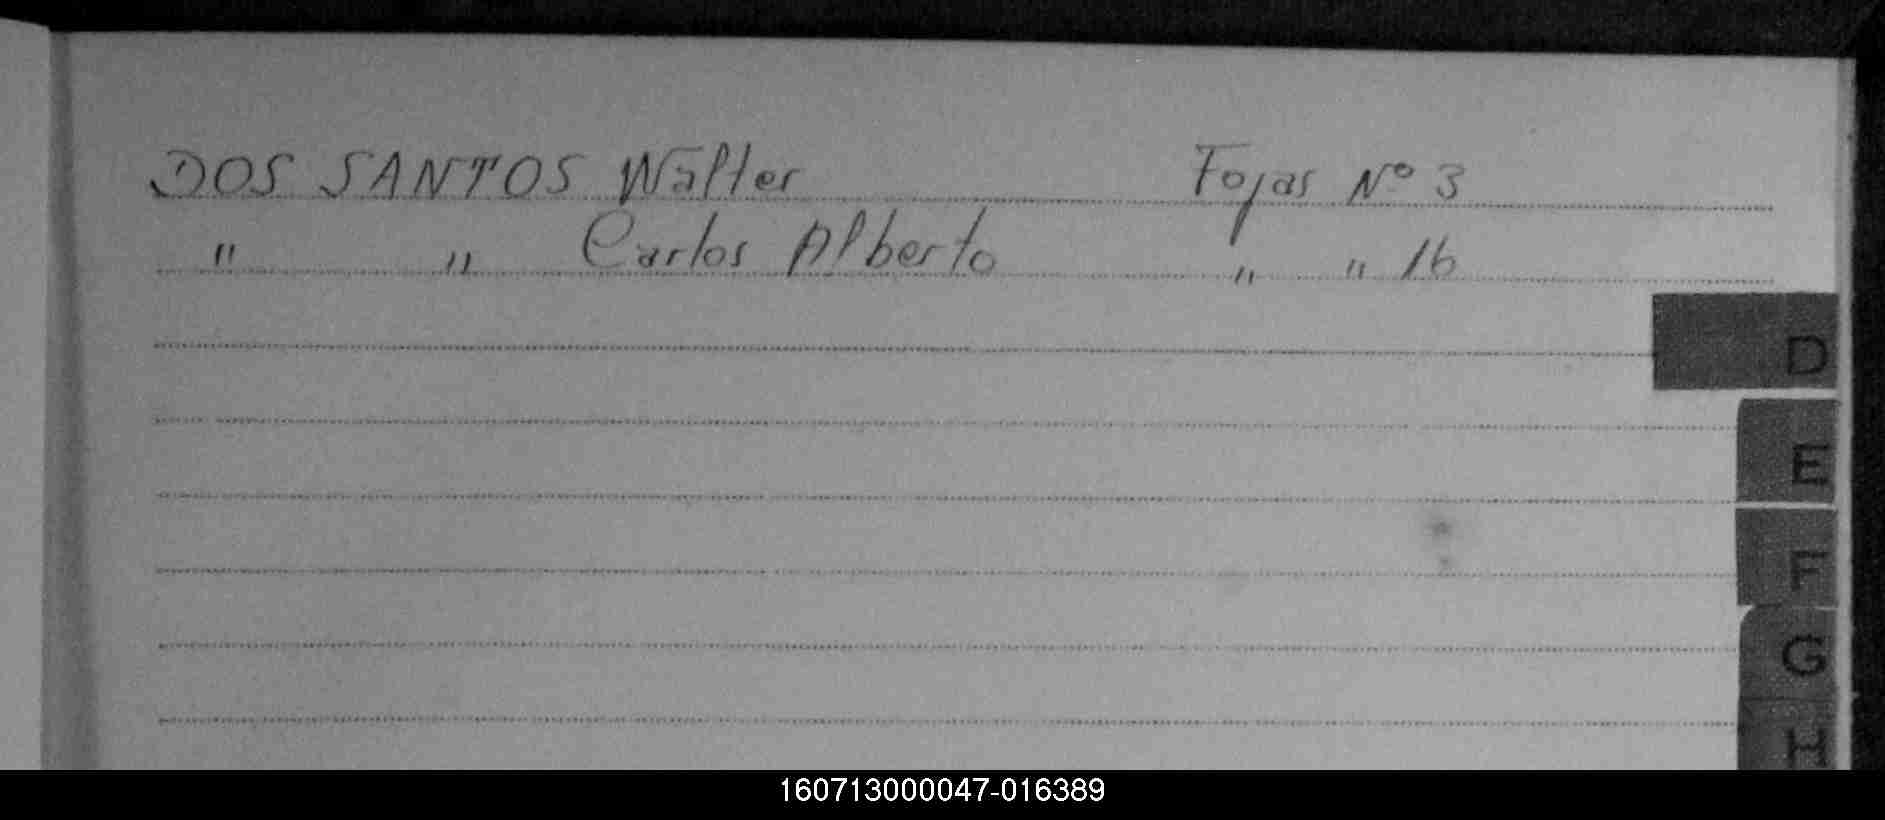 DOS SANTOS Walter Fojas Nº 3
" " Carlos Alberto " " 16
D
E
F
G
H
160713000047-016389